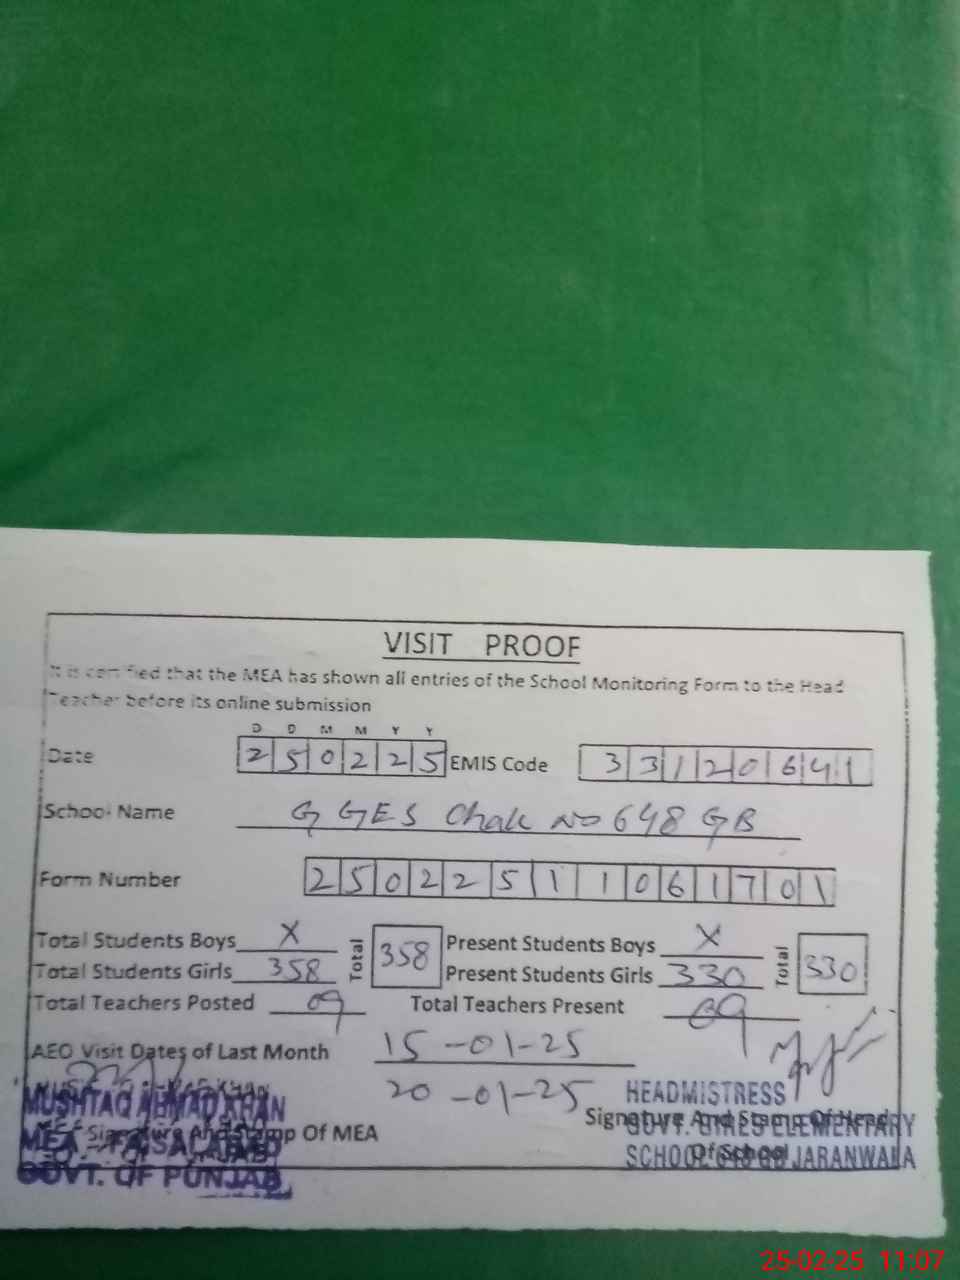 VISIT PROOF
It is certified that the MEA has shown all entries of the School Monitoring Form to the Head
Teacher before its online submission
D D M M Y Y
Date 2 5 0 2 2 5 EMIS Code 3 3 1 2 0 6 4 1
School Name G GES Chak no 648 GB
Form Number 2 5 0 2 2 5 1 1 0 6 1 7 0 1
Total Students Boys X Total 358 Present Students Boys X Total 330
Total Students Girls 358 Present Students Girls 330
Total Teachers Posted 09 Total Teachers Present 09
AEO Visit Dates of Last Month 15-01-25
20-01-25
HEADMISTRESS
MUSHTAQ AHMAD KHAN
Signature And Stamp Of Head
GOVT. GIRLS ELEMENTARY
MEA FAISALABAD
Signature And Stamp Of MEA
Of School
SCHOOL 648 GB JARANWALA
GOVT. OF PUNJAB
25-02-25 11:07